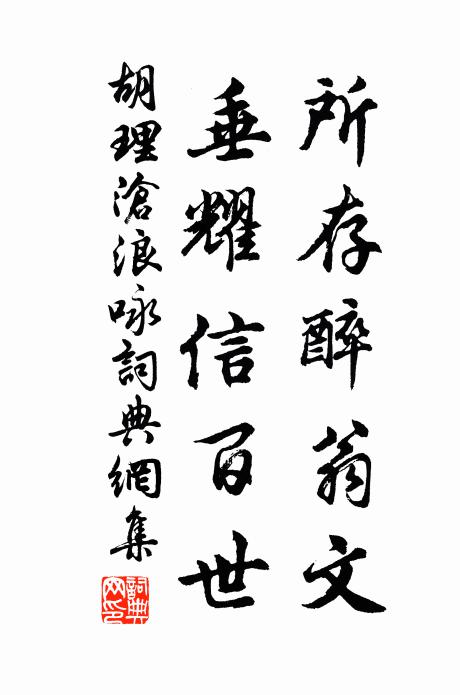 所存醉翁文
垂耀信百世
胡理滄浪咏詞典網集
詞典网印